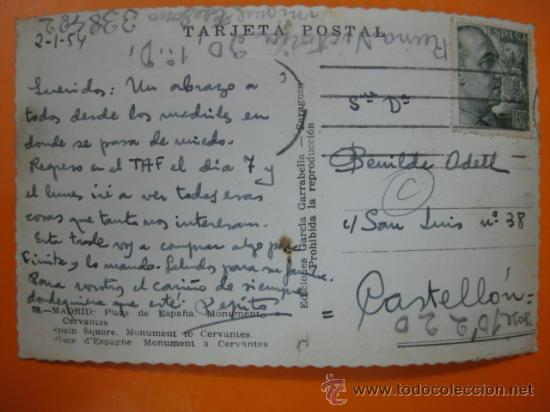 TARJETA POSTAL
2-1-54
338482
Queridos: Un abrazo a
todos desde los madriles en
donde se pasa de miedo.
Regreso en el TAF el dia 7 y
el lunes iré a ver todas esas
cosas que tanto nos interesan.
Esta tarde voy a comprar algo para
Finita y lo mando. Saludos para su
Para vostés el cariño de siempre
dondequiera que esté: Pepito
78.—MADRID: Plaza de España. Monumento a
Cervantes
Spain Square. Monument to Cervantes.
Place d'Espagne. Monument à Cervantes
Ediciones García Garrabella — Zaragoza
Prohibida la reproducción
ESPAÑA
Sta Da
Benilde Adell
C
c/ San Luis nº 38
= Castellón =
www.todocoleccion.net
todocoleccion